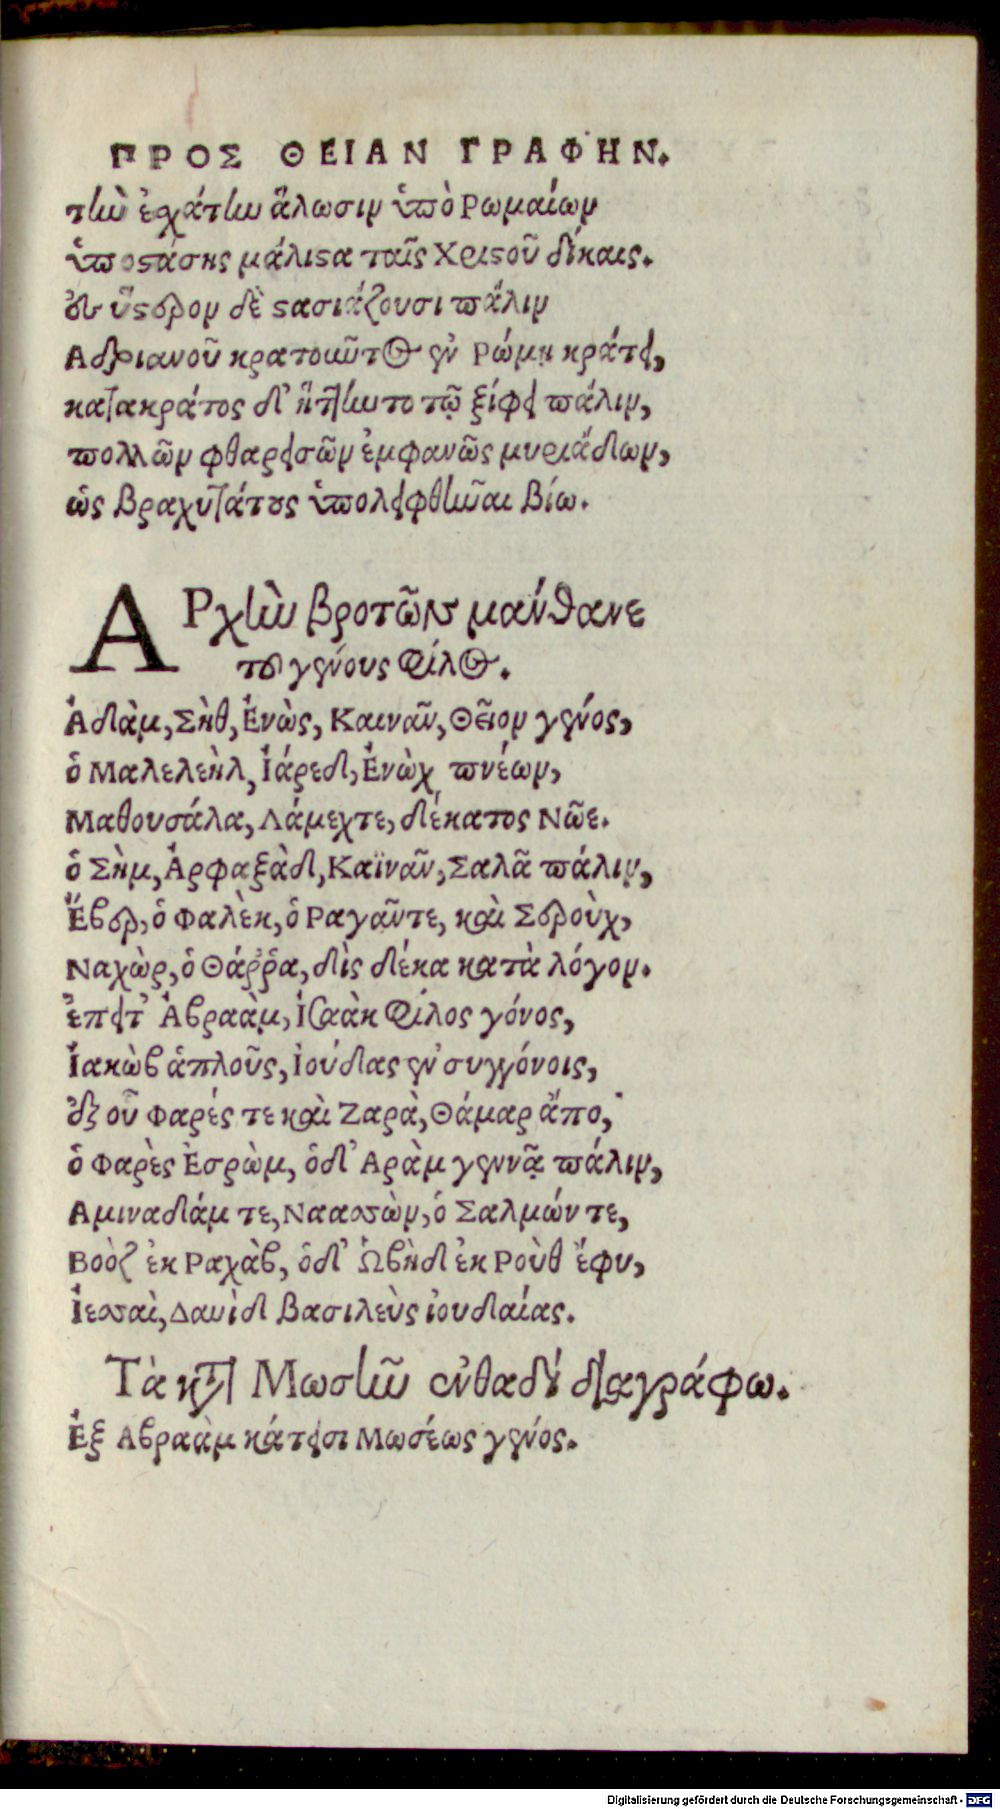 ΠΡΟΣ ΘΕΙΑΝ ΓΡΑΦΗΝ.
τὴν ἐχάτην ἅλωσιν ὑπὸ Ρωμαίων
ὑποστάσης μάλιστα ταῖς Χριστοῦ δίκαις.
ἐν ὕστερον δὲ στασιάζουσι πάλιν
Αδριανοῦ κρατοῦντος ἐν Ρώμῃ κράτει,
κατακράτος δ' ἥττηντο τῷ ξίφει πάλιν,
πολλῶν φθαρεισῶν ἐμφανῶς μυριάδων,
ὡς βραχυτάτους ὑπολειφθῆναι βίω.
ΑΡχὴν βροτῶν μάνθανε
τοῦ γένους φίλος.
Ἀδὰμ, Σὴθ, Ἐνὼς, Καινᾶν, Θεῖον γένος,
ὁ Μαλελεὴλ, Ἰάρεδ, Ἐνὼχ πνέων,
Μαθουσάλα, Λάμεχτε, δέκατος Νῶε.
ὁ Σὴμ, Ἀρφαξὰδ, Καϊνᾶν, Σαλᾶ πάλιν,
Ἕβερ, ὁ Φαλὲκ, ὁ Ραγᾶντε, καὶ Σεροὺχ,
Ναχὼρ, ὁ Θάῤῥα, δὶς δέκα κατὰ λόγον.
ἔπειτ' Ἀβραὰμ, Ἰσαὰκ φίλος γόνος,
Ἰακὼβ ἁπλοῦς, Ἰούδας ἐν συγγόνοις,
ἐξ οὗ Φαρές τε καὶ Ζαρὰ, Θάμαρ ἄπο,
ὁ Φαρὲς Ἐσρὼμ, ὁδ' Αρὰμ γεννᾷ πάλιν,
Αμιναδάμ τε, Ναασσὼν, ὁ Σαλμών τε,
Βοὸζ ἐκ Ραχὰβ, ὁδ' Ὠβὴδ ἐκ Ροὺθ ἔφυ,
Ἰεσσαὶ, Δαυὶδ βασιλεὺς ἰουδαίας.
Τὰ κατὰ Μωσῆν ἐνθαδὶ διαγράφω.
Ἐξ Αβραὰμ κάτεισι Μωσέως γένος.
Digitalisierung gefördert durch die Deutsche Forschungsgemeinschaft - DFG